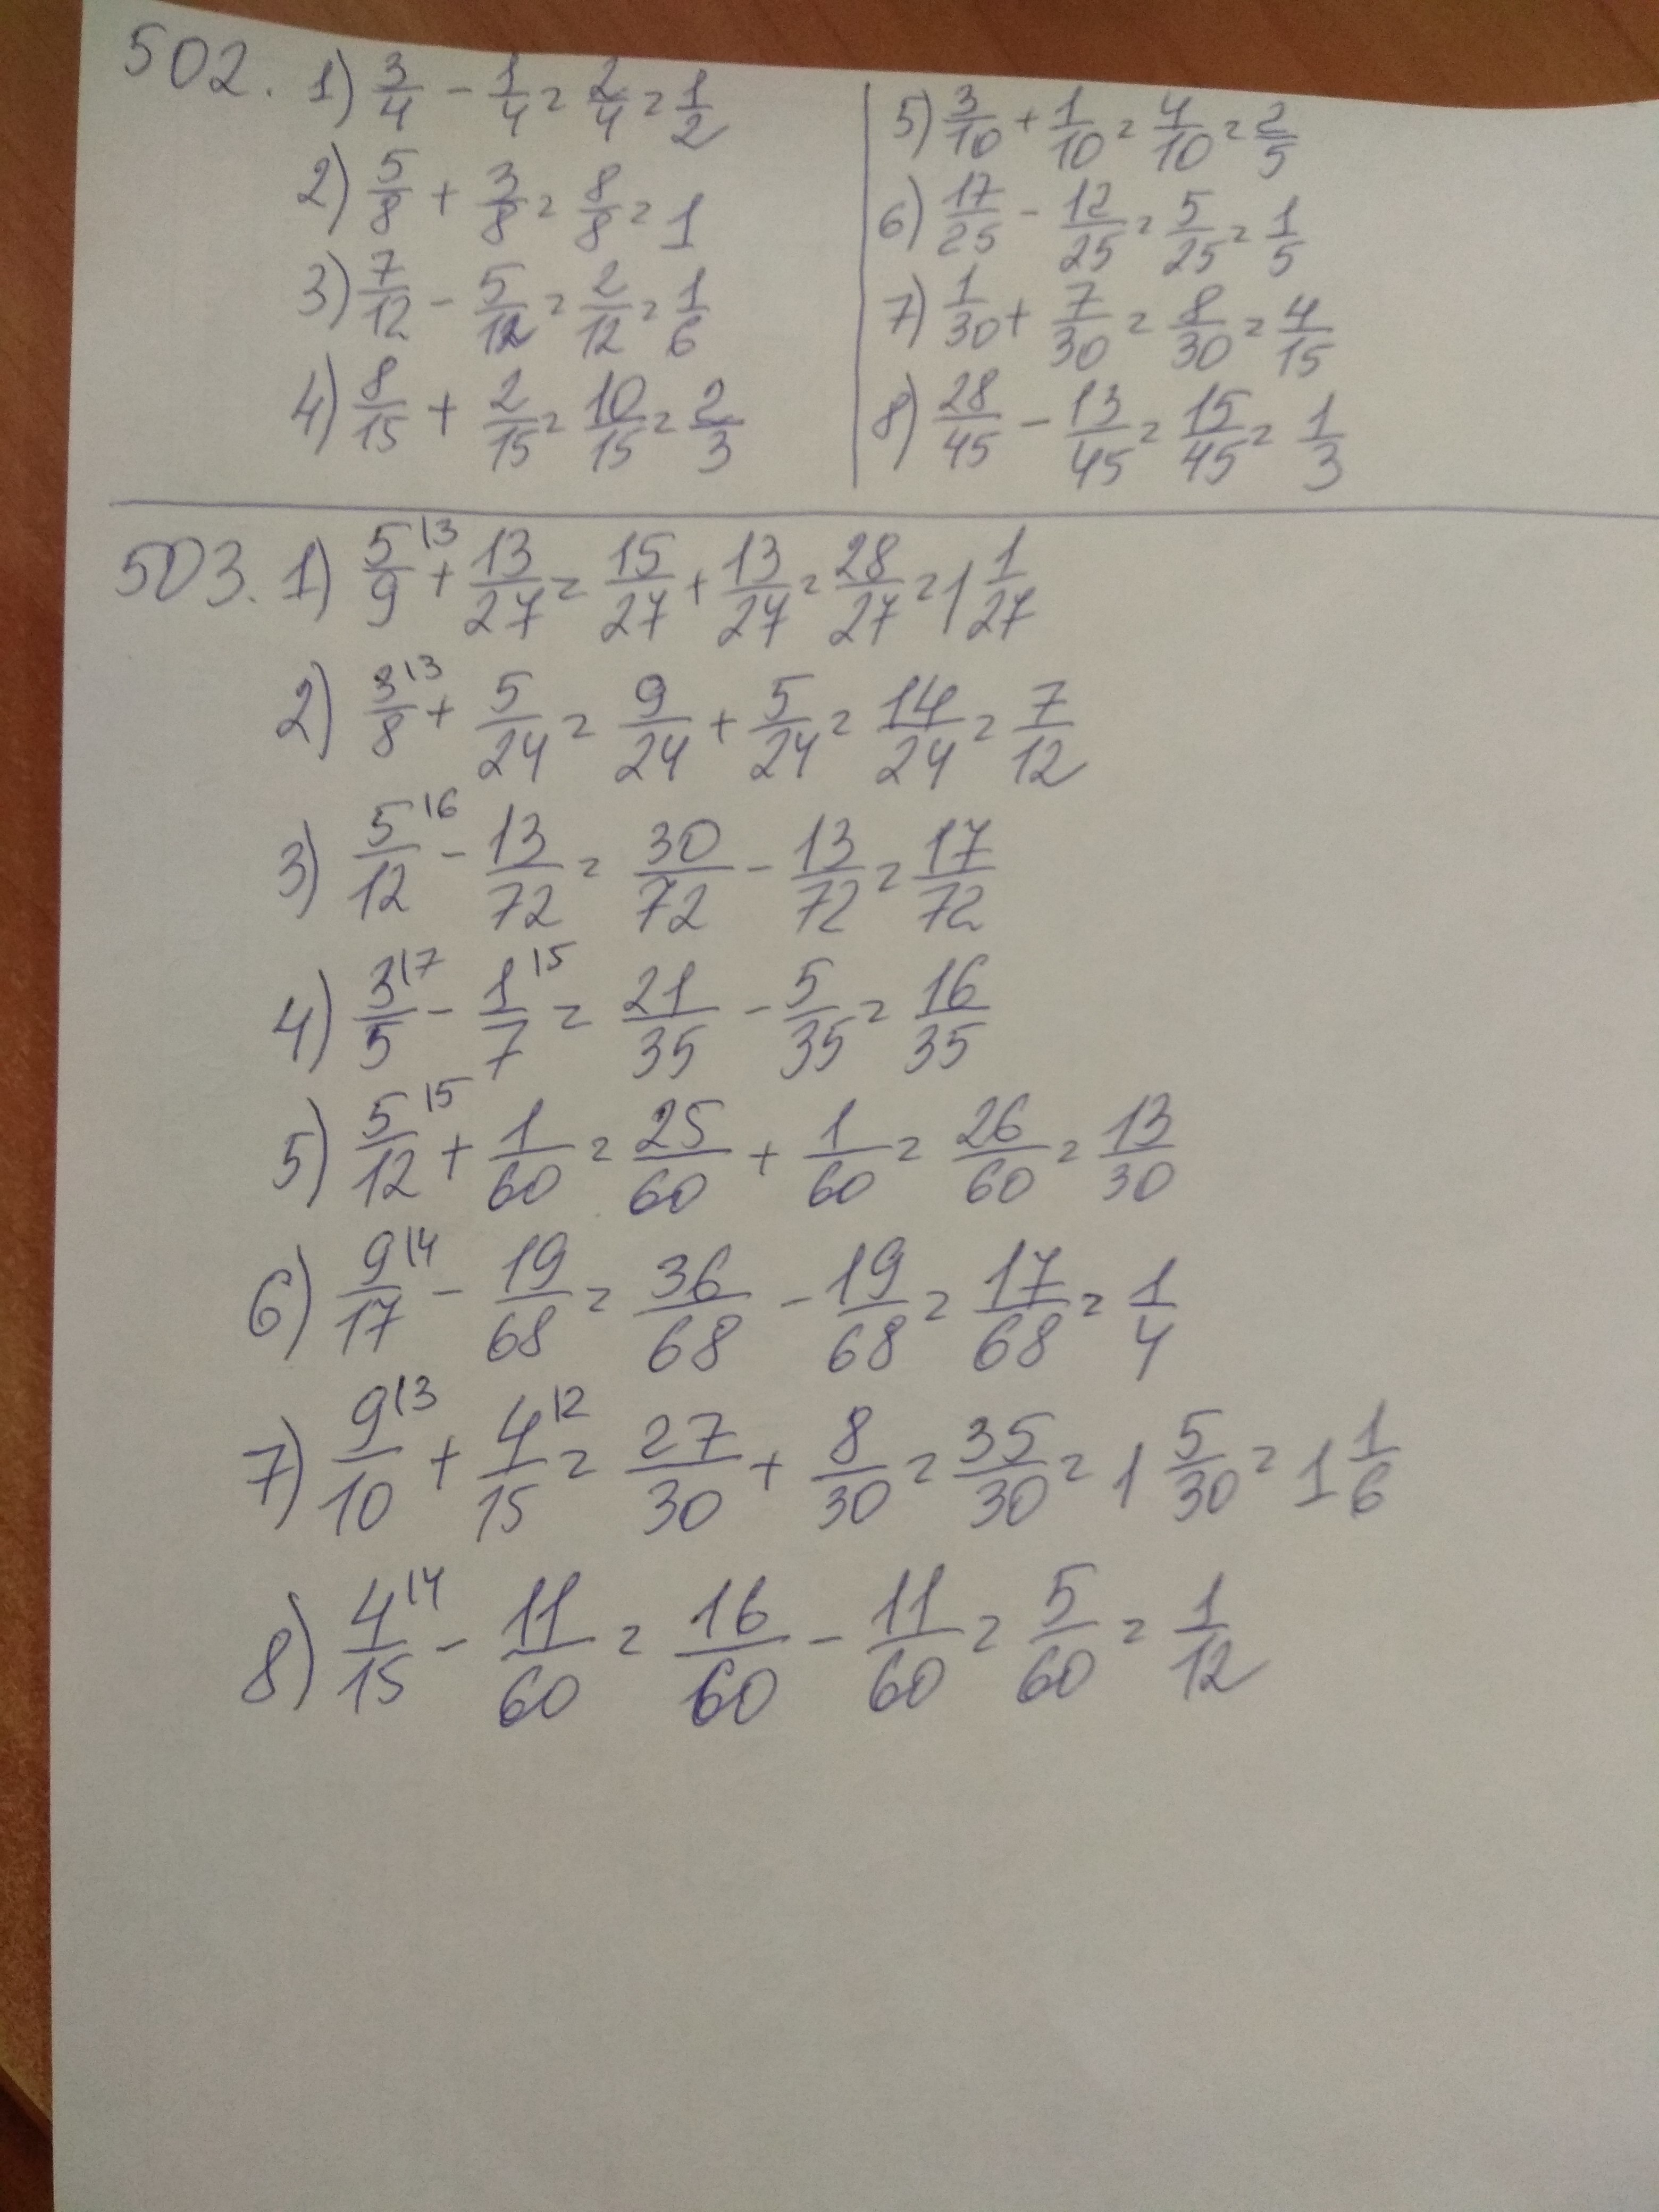 502. 1) 3/4 - 1/4 = 2/4 = 1/2
2) 5/8 + 3/8 = 8/8 = 1
3) 7/12 - 5/12 = 2/12 = 1/6
4) 8/15 + 2/15 = 10/15 = 2/3
5) 3/10 + 1/10 = 4/10 = 2/5
6) 17/25 - 12/25 = 5/25 = 1/5
7) 1/30 + 7/30 = 8/30 = 4/15
8) 28/45 - 13/45 = 15/45 = 1/3
503. 1) 5/9 \3 + 13/27 = 15/27 + 13/27 = 28/27 = 1 1/27
2) 3/8 \3 + 5/24 = 9/24 + 5/24 = 14/24 = 7/12
3) 5/12 \6 - 13/72 = 30/72 - 13/72 = 17/72
4) 3/5 \7 - 1/7 \5 = 21/35 - 5/35 = 16/35
5) 5/12 \5 + 1/60 = 25/60 + 1/60 = 26/60 = 13/30
6) 9/17 \4 - 19/68 = 36/68 - 19/68 = 17/68 = 1/4
7) 9/10 \3 + 4/15 \2 = 27/30 + 8/30 = 35/30 = 1 5/30 = 1 1/6
8) 4/15 \4 - 11/60 = 16/60 - 11/60 = 5/60 = 1/12